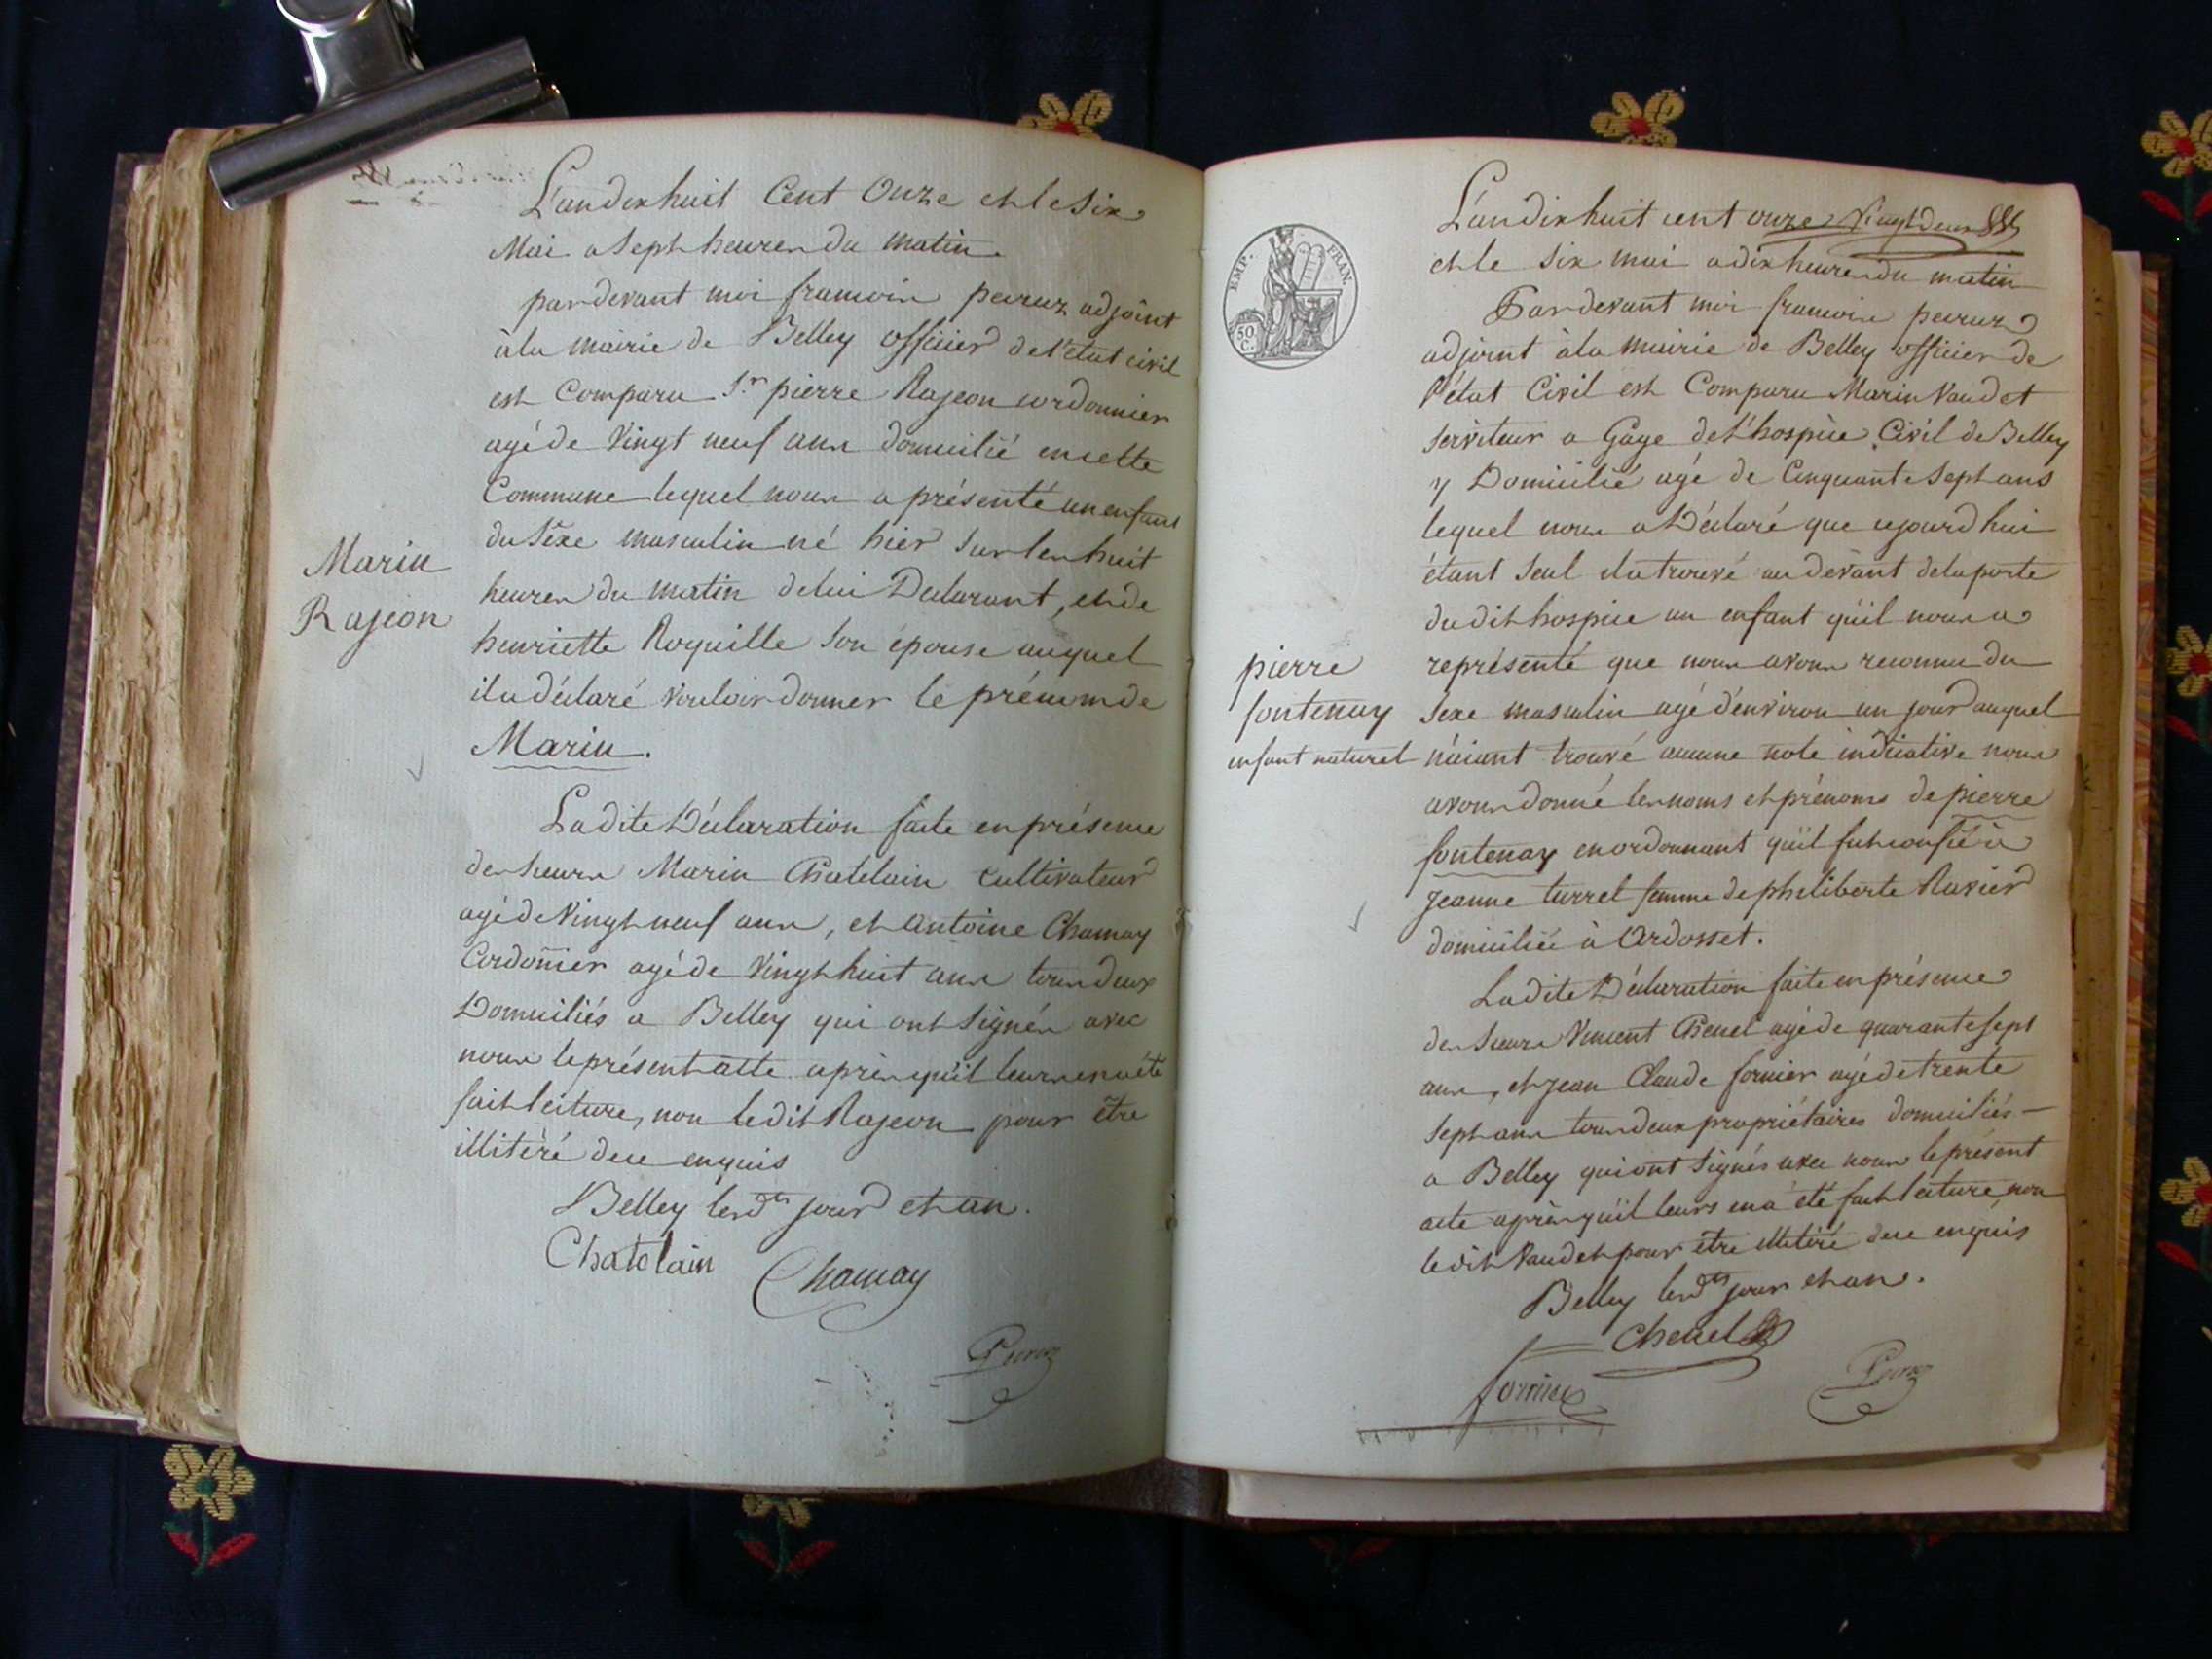 L'an dix huit Cent Onze et le Six
Mai a Sept heures du matin
pardevant moi francois peyruz adjoint
à la mairie de Belley officier de l'état civil
est Comparu Sr. pierre Rajeon cordonnier
agé de Vingt neuf ans domicilié en cette
Commune lequel nous a présenté un enfant
du Sexe masculin né hier sur les huit
heures du matin de lui Déclarant, et de
henriette Roquille son épouse auquel
il a déclaré vouloir donner le prénom de
Marin.
Marin
Rajeon
La dite Déclaration faite en présence
des sieurs Marin Chatelain cultivateur
agé de Vingt neuf ans, et antoine Chamay
Cordonier agé de Vingt huit ans tous deux
Domiciliés a Belley qui ont signés avec
nous le présent acte après qu'il leurs en a été
fait lecture, non le dit Rajeon pour être
illitéré de ce enquis
Belley les dts jour et an.
Chatelain Chamay
L'an dix huit cent onze Vingt deux
et le six mai a dix heures du matin
Pardevant moi francois peyruz
adjoint à la mairie de Belley officier de
l'état Civil est Comparu Marin Vaudet
serviteur a Gage de l'hospice Civil de Belley
y Domicilié agé de Cinquante Sept ans
lequel nous a Déclaré que ajourd'hui
étant seul il a trouvé au devant de la porte
du dit hospice un enfant qu'il nous a
représenté que nous avons reconnu du
sexe masculin agé d'environ un jour auquel
n'aiant trouvé aucune note indicative nous
avons donné les noms et prénoms de pierre
fontenay en ordonnant qu'il fut confié à
jeanne turrel femme de pheliberte Ravier
domiciliée à Ardosset.
pierre
fontenay
enfant naturel
La dite Déclaration faite en présence
des sieurs Vincent Chenel agé de quarante sept
ans, et jean Claude fornier agé de trente
sept ans tous deux propriétaires domiciliés
a Belley qui ont signés avec nous le présent
acte après qu'il leurs en a été fait lecture, non
le dit Vaudet pour être illitéré de ce enquis
Belley les dts jour et an.
Chenel
fornier
EMP. FRAN.
50
C.